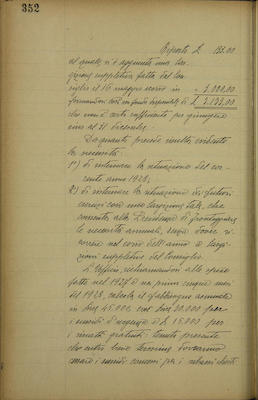 352
Riporto £ 155.00
al quale si è aggiunta una lar-
gizione suppletiva fatta dal Con-
siglio il 16 maggio scorso in " 3.000.00
formandosi così un fondo disponibile di £ 3.155.00
che non è certo sufficiente per giungere
sino al 31 dicembre.
Da quanto precede risulta evidente
la necessità:
1°) di sistemare la situazione del cor-
rente anno 1928;
2°) di sistemare la situazione dei futuri
esercizi con uno stanziamento tale, che
consenta alla Presidenza di fronteggiare
le necessità annuali, senza dover ri-
correre nel corso dell'anno a largi-
zioni suppletive del Consiglio.
L'Ufficio, richiamandosi alle spese
fatte nel 1927 e nei primi cinque mesi
del 1928, calcola il fabbisogno annuale
in lire 45.000 cioè lire 30.000 per
i sussidi d'urgenza e £ 15.000 per
i rimasti gratuiti: tenuto presente
che entro breve termine dovranno
i sussidi comuni per i